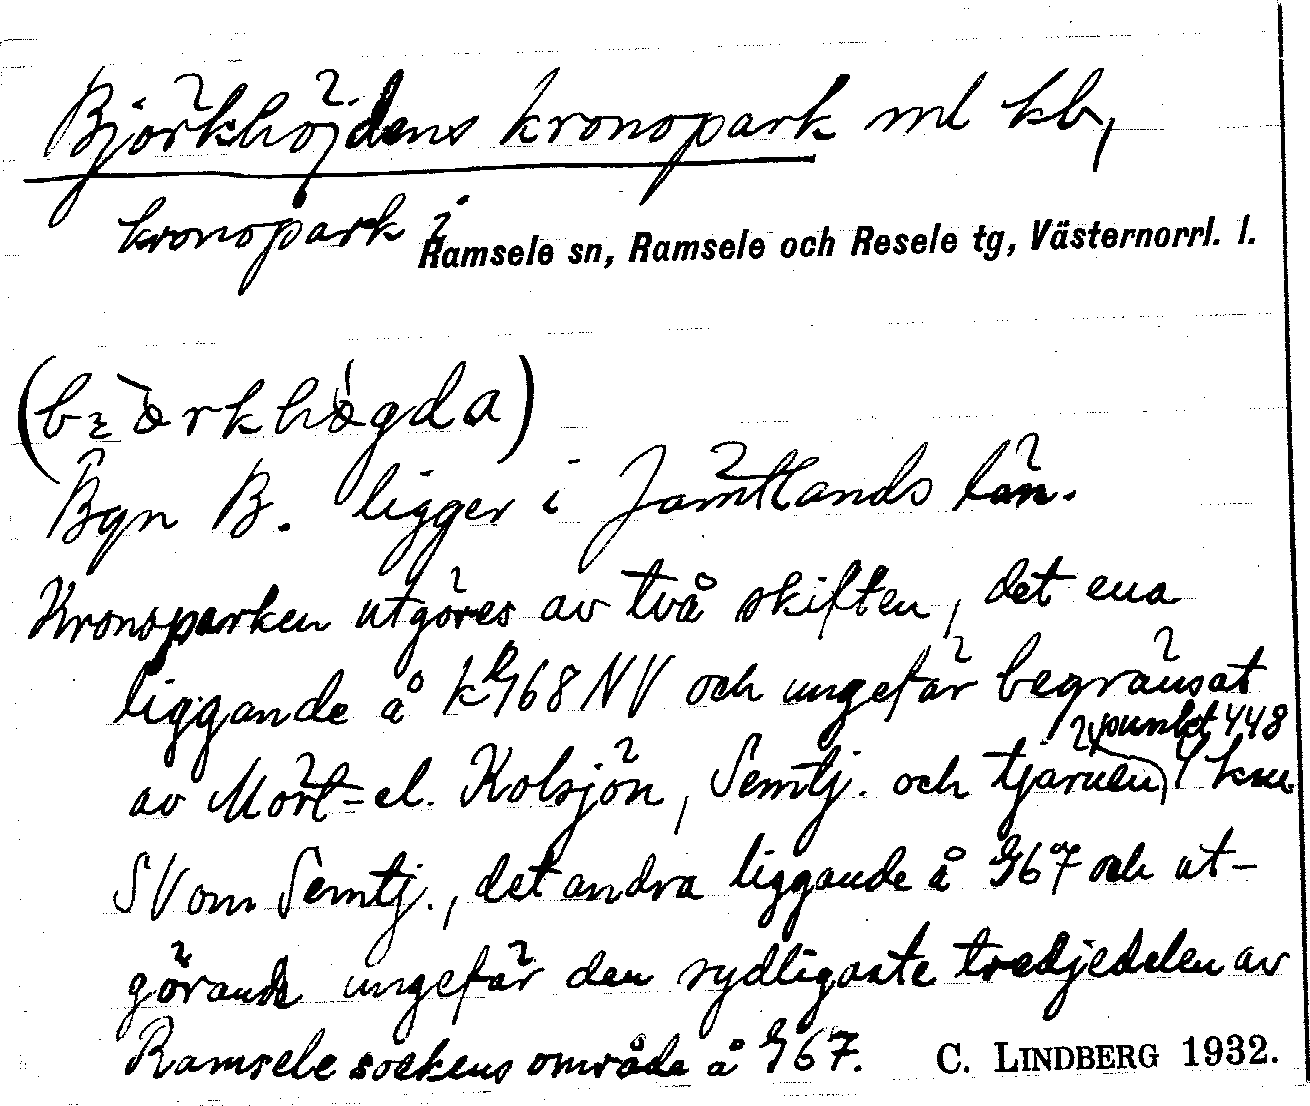 Björkhöjdens kronopark ml kb,
kronopark i
Ramsele sn, Ramsele och Resele tg, Västernorrl. l.
Bgn B. ligger i Jämtlands län.
Kronoparken utgöres av två skiften, det ena
liggande å kbl 68 NV och ungefär begränsat
punkt 448
av Mört- el. Kolsjön, Semtj. och tjärnen 1 km
SV om Semtj., det andra liggande å bl 67 och ut-
görande ungefär den sydligaste tredjedelen av
Ramsele sockens område å bl 67.
C. LINDBERG 1932.